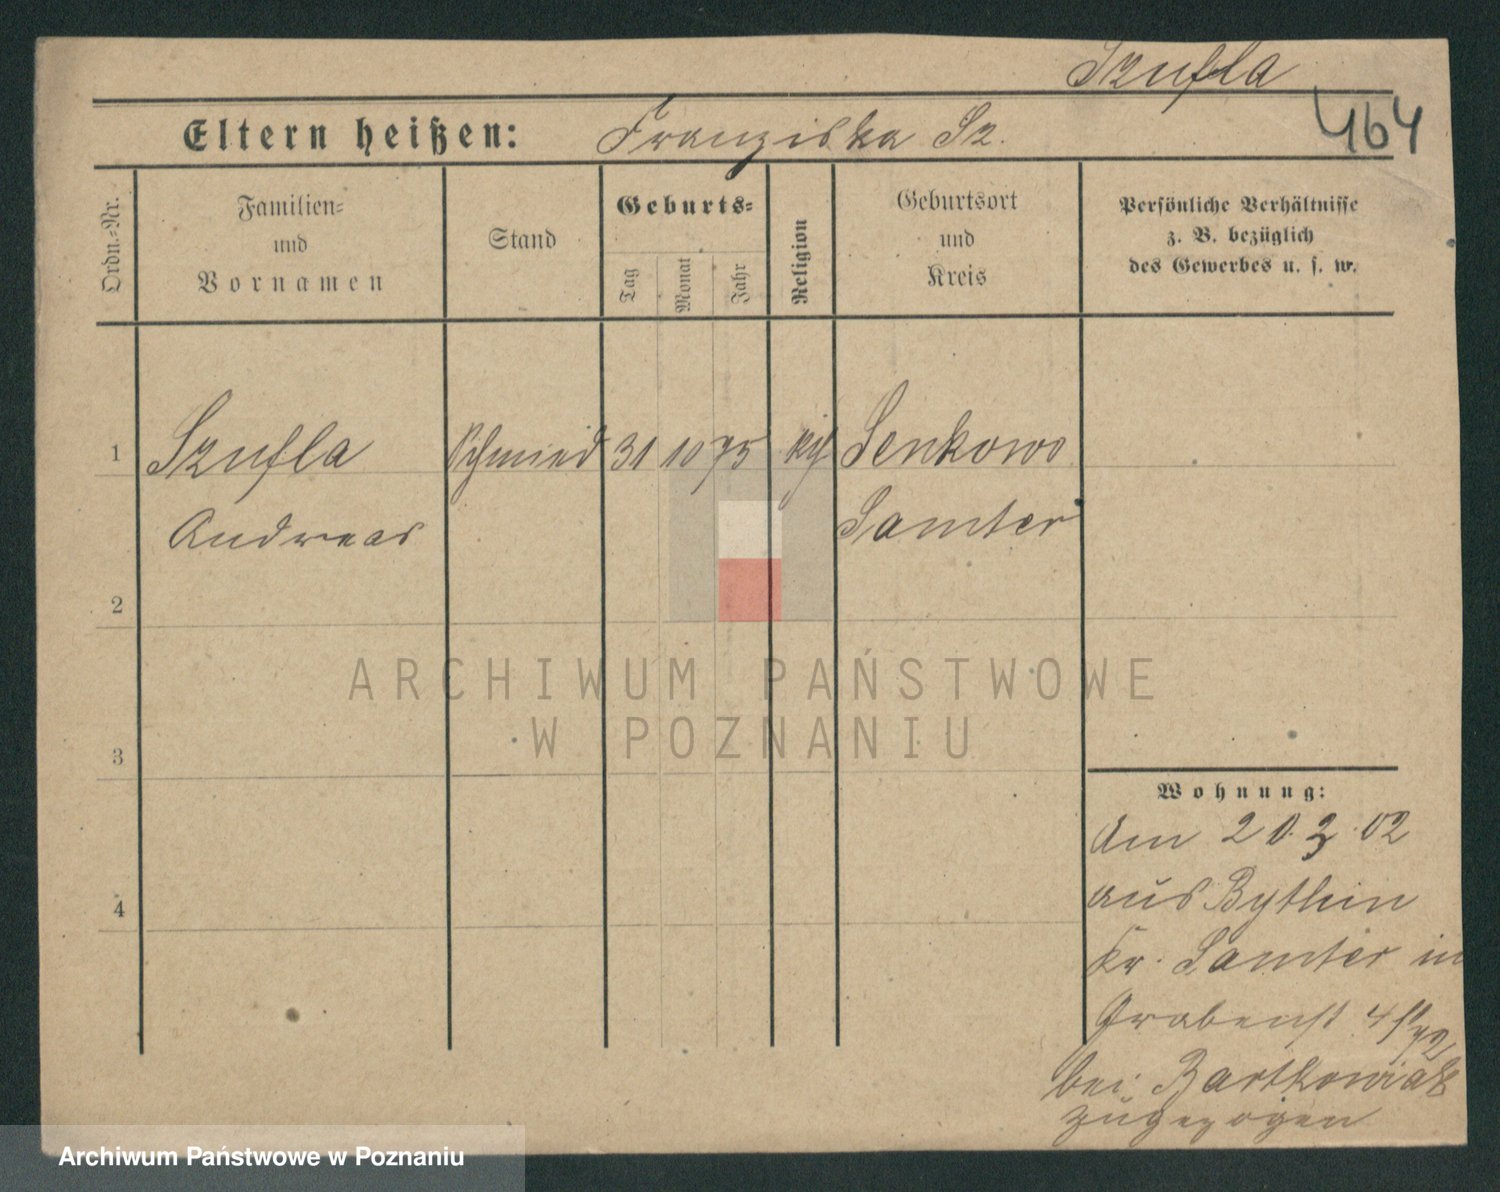 Szufla
464
Eltern heißen: Franziska Sz.
Ordn.-Nr.
Familien-
und
Vornamen
Stand
Geburts-
Tag
Monat
Jahr
Religion
Geburtsort
und
Kreis
Persönliche Verhältnisse
z. B. bezüglich
des Gewerbes u. s. w.
1 Szufla Schmied 31 10 75 kth Senkowo
Andreas Samter
2
ARCHIWUM PAŃSTWOWE
W POZNANIU
3
Wohnung:
Am 20.3.02
aus Bythin
4
Kr. Samter in
Grabenst 4
bei Bartkowiak
zugezogen
Archiwum Państwowe w Poznaniu